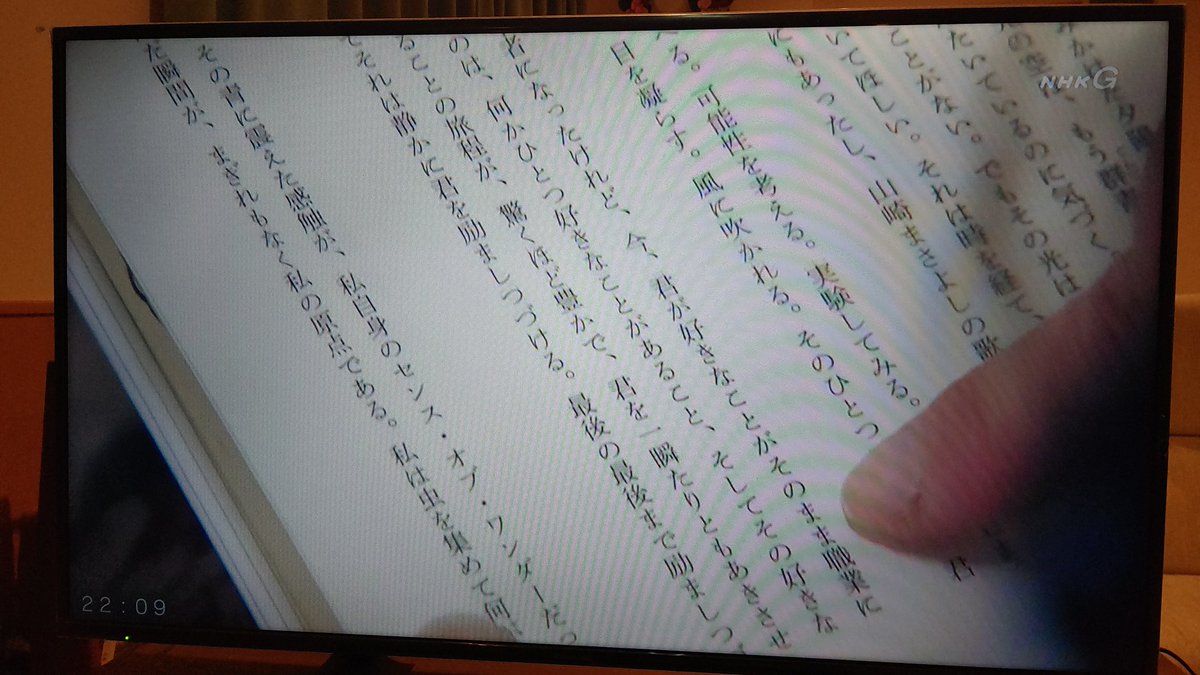 たいているのに気づく
ことがない。でもその光は
いてほしい。それは時を経て、
にもあったし、山崎まさよしの歌
べる。可能性を考える。実験してみる。
目を凝らす。風に吹かれる。そのひとつ
君
者になったけれど、今、君が好きなことがそのまま職業に
のは、何かひとつ好きなことがあること、そしてその好きな
ることの旅程が、驚くほど豊かで、君を一瞬たりともあきさせ
てそれは静かに君を励ましつづける。最後の最後まで励ましつ
その青に震えた感触が、私自身のセンス・オブ・ワンダーだっ
た瞬間が、まぎれもなく私の原点である。私は虫を集めて何
NHK G
22:09